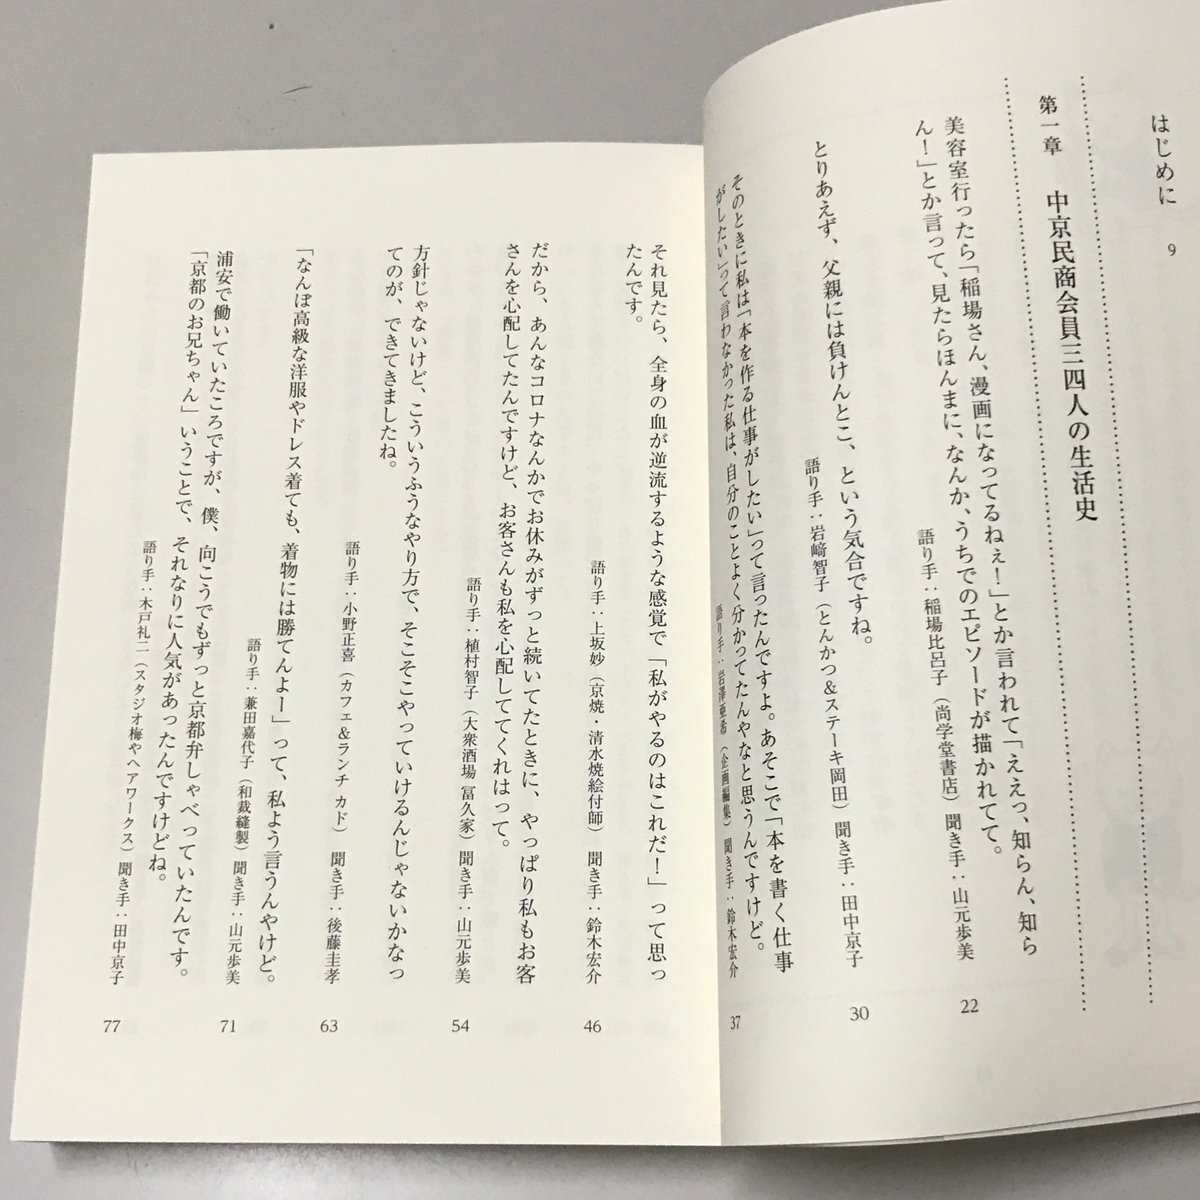 はじめに 9
第一章 中京民商会員三四人の生活史
美容室行ったら「稲場さん、漫画になってるねぇ！」とか言われて「ええっ、知らん、知ら
ん！」とか言って、見たらほんまに、なんか、うちでのエピソードが描かれてて。
語り手：稲場比呂子（尚学堂書店）聞き手：山元歩美 22
とりあえず、父親には負けんとこ、という気合ですね。
語り手：岩﨑智子（とんかつ＆ステーキ岡田）聞き手：田中京子 30
そのときに私は「本を作る仕事がしたい」って言ったんですよ。あそこで「本を書く仕事
がしたい」って言わなかった私は、自分のことよく分かってたんやなと思うんですけど。
語り手：岩澤亜希（企画編集）聞き手：鈴木宏介 37
それ見たら、全身の血が逆流するような感覚で「私がやるのはこれだ！」って思っ
たんです。
語り手：上坂妙（京焼・清水焼絵付師）聞き手：鈴木宏介 46
だから、あんなコロナなんかでお休みがずっと続いてたときに、やっぱり私もお客
さんを心配してたんですけど、お客さんも私を心配してくれはって。
語り手：植村智子（大衆酒場 冨久家）聞き手：山元歩美 54
方針じゃないけど、こういうふうなやり方で、そこそこやっていけるんじゃないかなっ
てのが、できてきましたね。
語り手：小野正喜（カフェ＆ランチ カド）聞き手：後藤圭孝 63
「なんぼ高級な洋服やドレス着ても、着物には勝てんよー」って、私よう言うんやけど。
語り手：兼田嘉代子（和裁縫製）聞き手：山元歩美 71
浦安で働いていたころですが、僕、向こうでもずっと京都弁しゃべっていたんです。
「京都のお兄ちゃん」いうことで、それなりに人気があったんですけどね。
語り手：木戸礼二（スタジオ梅やヘアワークス）聞き手：田中京子 77